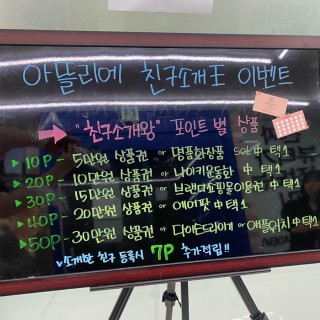 아뜰리에 친구소개표 이벤트
"친구소개왕" 포인트 별 상품
▶ 10P - 5만원 상품권 or 명품화장품 set中 택1
▶ 20P - 10만원 상품권 or 나이키운동화 中 택1
▶ 30P - 15만원 상품권 or 브랜드쇼핑몰이용권 中 택1
▶ 40P - 20만원 상품권 or 에어팟 中 택1
▶ 50P - 30만원 상품권 or 다이슨드라이기 or 애플워치 中 택1
✓ 소개한 친구 등록시 7P 추가적립!!